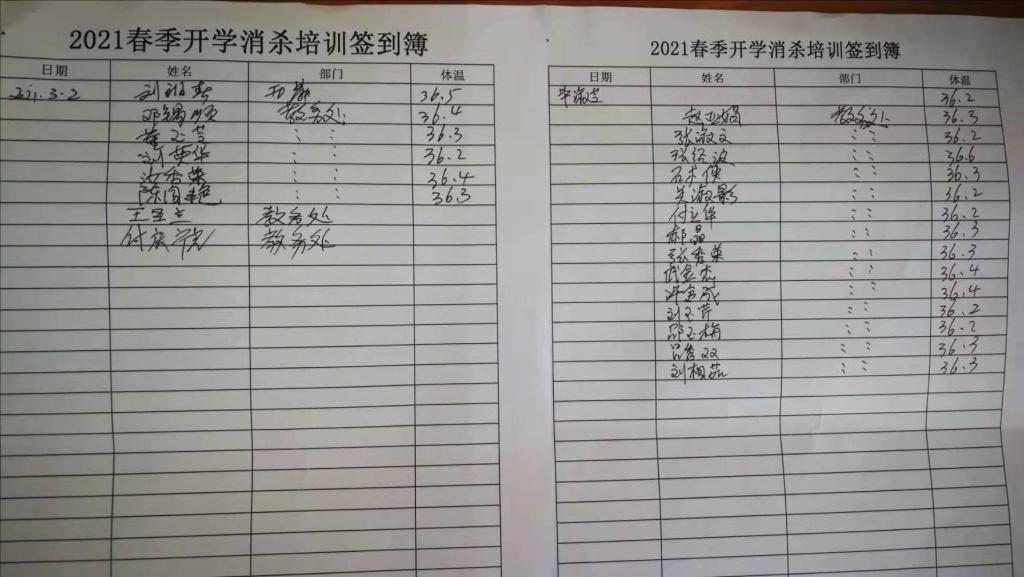 2021春季开学消杀培训签到簿
日期 姓名 部门 体温
2021.3.2 刘 36.5
邓锡顺 教务处 36.4
董玉兰 〃 36.3
刘荣华 〃 36.2
荣 〃 36.4
陈国艳 〃 36.3
王 教务处
付 教务处
2021春季开学消杀培训签到簿
日期 姓名 部门 体温
毕淑 36.2
赵亚娟 教务处 36.3
张淑文 〃 36.2
张经波 〃 36.6
石术侠 〃 36.3
关淑影 〃 36.2
付立华 〃 36.2
郝晶 〃 36.3
张秀荣 〃 36.3
武金杰 〃 36.4
许金成 〃 36.4
刘玉芹 〃 36.2
邵玉梅 〃 36.2
吕秀双 〃 36.3
刘相茹 〃 36.3